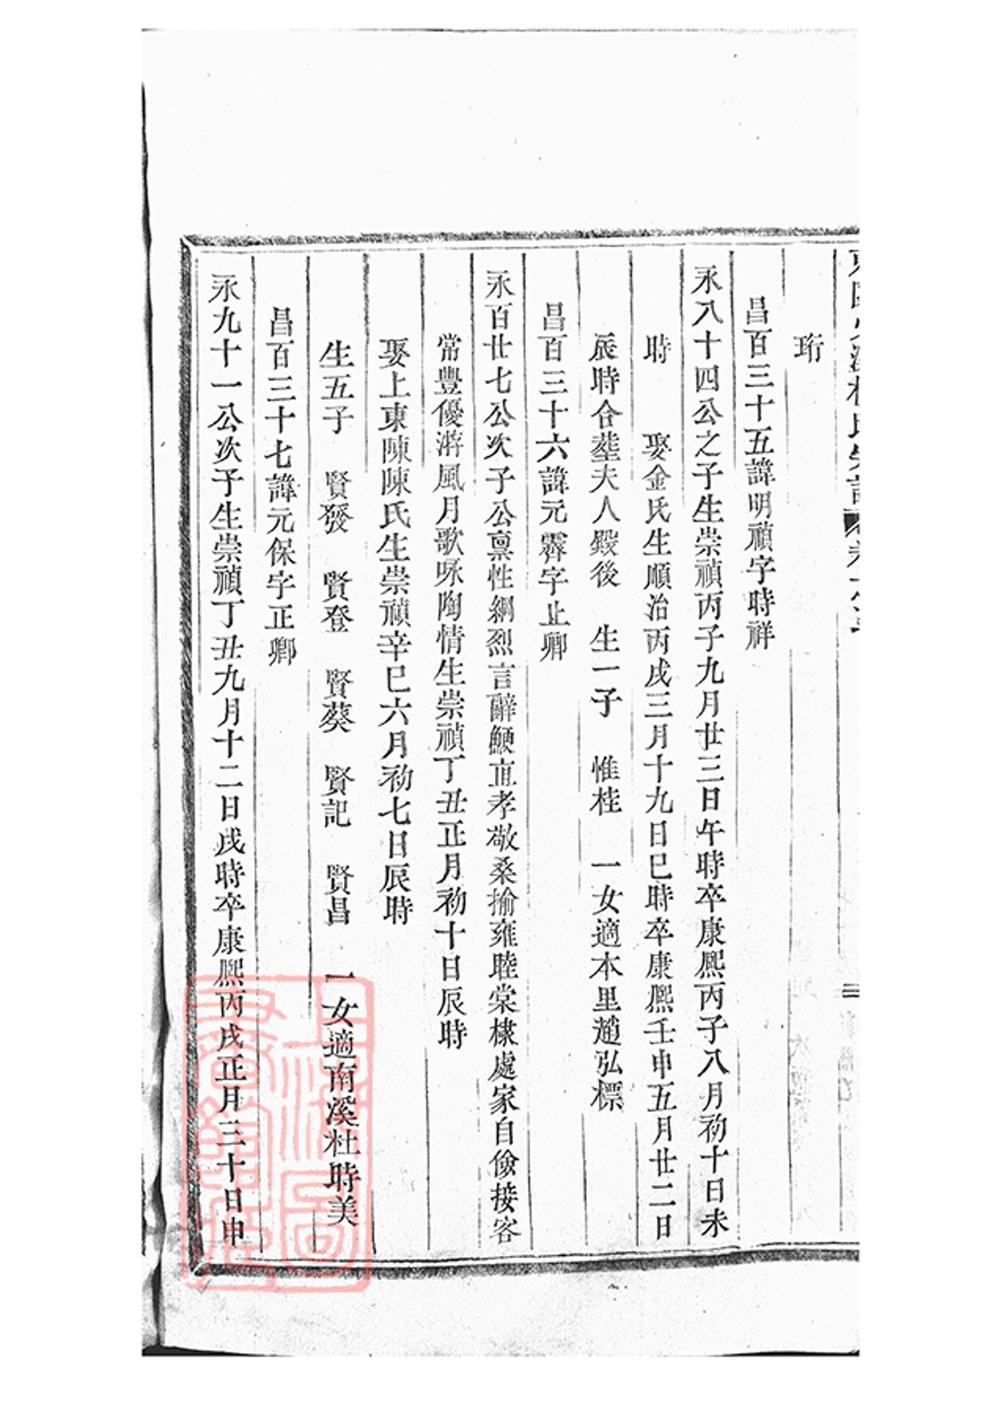 珩
昌百三十五諱明禎字時祥
永八十四公之子生崇禎丙子九月廿三日午時卒康熙丙子八月初十日未
時　娶金氏生順治丙戌三月十九日巳時卒康熙壬申五月廿二日
辰時合塟夫人殿後　生一子　惟桂　一女適本里趙弘標
昌百三十六諱元霽字止卿
永百廿七公次子公禀性綱烈言辭鯁直孝敬桑揄雍睦棠棣處家自儉接客
常豐優游風月歌咏陶情生崇禎丁丑正月初十日辰時
娶上東陳陳氏生崇禎辛巳六月初七日辰時
生五子　賢發　賢登　賢葵　賢記　賢昌　一女適南溪杜時美
昌百三十七諱元保字正卿
永九十一公次子生崇禎丁丑九月十二日戌時卒康熙丙戌正月三十日申
上海圖書館藏